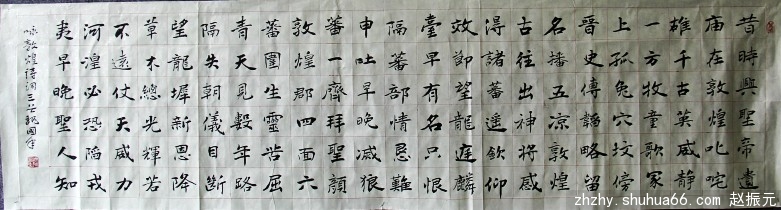 昔時興聖帝遺
庙在敦煌叱咤
雄千古英威静
一方牧童歌冢
上孤兔穴坟傍
晋史傳韜略留
名播五凉敦煌
古往出神将感
得諸蕃遥欽仰
效節望龍庭麟
臺早有名只恨
隔蕃部情恳難
申吐早晚滅狼
蕃一齊拜聖顔
敦煌郡四面六
蕃圍生靈苦屈
青天見數年路
隔失朝儀目断
望龍墀新恩降
草木總光輝若
不遠仗天威力
河湟必恐陷戎
夷早晚聖人知
咏敦煌诗词三首
zhzhy.shuhua66.com 赵振元